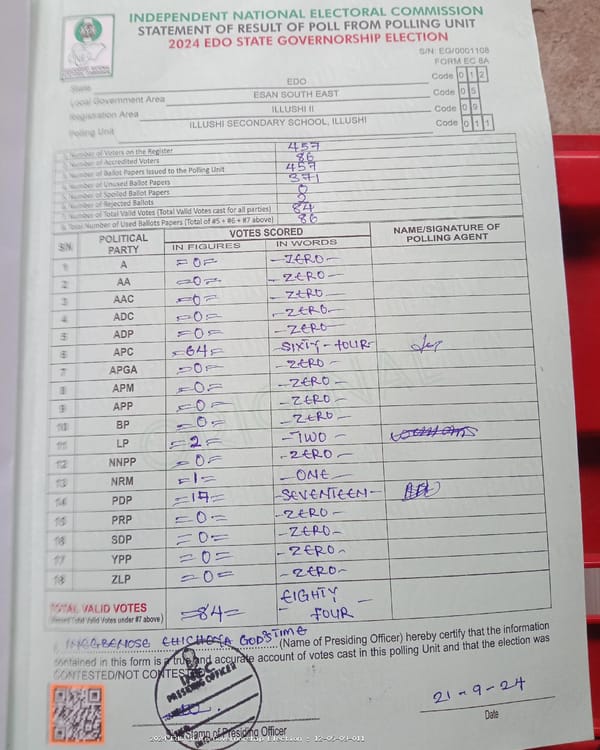 INDEPENDENT NATIONAL ELECTORAL COMMISSION
STATEMENT OF RESULT OF POLL FROM POLLING UNIT
2024 EDO STATE GOVERNORSHIP ELECTION
S/N: EG/0001108
FORM EC 8A
State EDO Code 0 1 2
Local Government Area ESAN SOUTH EAST Code 0 5
Registration Area ILLUSHI II Code 0 9
Polling Unit ILLUSHI SECONDARY SCHOOL, ILLUSHI Code 0 1 1
Number of Voters on the Register 457
Number of Accredited Voters 86
Number of Ballot Papers Issued to the Polling Unit 457
Number of Unused Ballot Papers 371
Number of Spoiled Ballot Papers 0
Number of Rejected Ballots 2
Number of Total Valid Votes (Total Valid Votes cast for all parties) 84
Total Number of Used Ballots Papers (Total of #5 + #6 + #7 above) 86
S/N POLITICAL PARTY VOTES SCORED NAME/SIGNATURE OF POLLING AGENT
IN FIGURES IN WORDS
1 A =0= -ZERO-
2 AA =0= -ZERO-
3 AAC =0= -ZERO-
4 ADC =0= -ZERO-
5 ADP =0= -ZERO-
6 APC =64= -SIXTY-FOUR-
7 APGA =0= -ZERO-
8 APM =0= -ZERO-
9 APP =0= -ZERO-
10 BP =0= -ZERO-
11 LP =2= -TWO-
12 NNPP =0= -ZERO-
13 NRM =1= -ONE-
14 PDP =17= -SEVENTEEN-
15 PRP =0= -ZERO-
16 SDP =0= -ZERO-
17 YPP =0= -ZERO-
18 ZLP =0= -ZERO-
TOTAL VALID VOTES =84= EIGHTY - FOUR
Total Valid Votes under #7 above)
I, GODSTIME (Name of Presiding Officer) hereby certify that the information
contained in this form is a true and accurate account of votes cast in this polling Unit and that the election was
CONTESTED/NOT CONTESTED
INEC
PRESIDING OFFICER
21-9-24
Stamp of Presiding Officer
Date